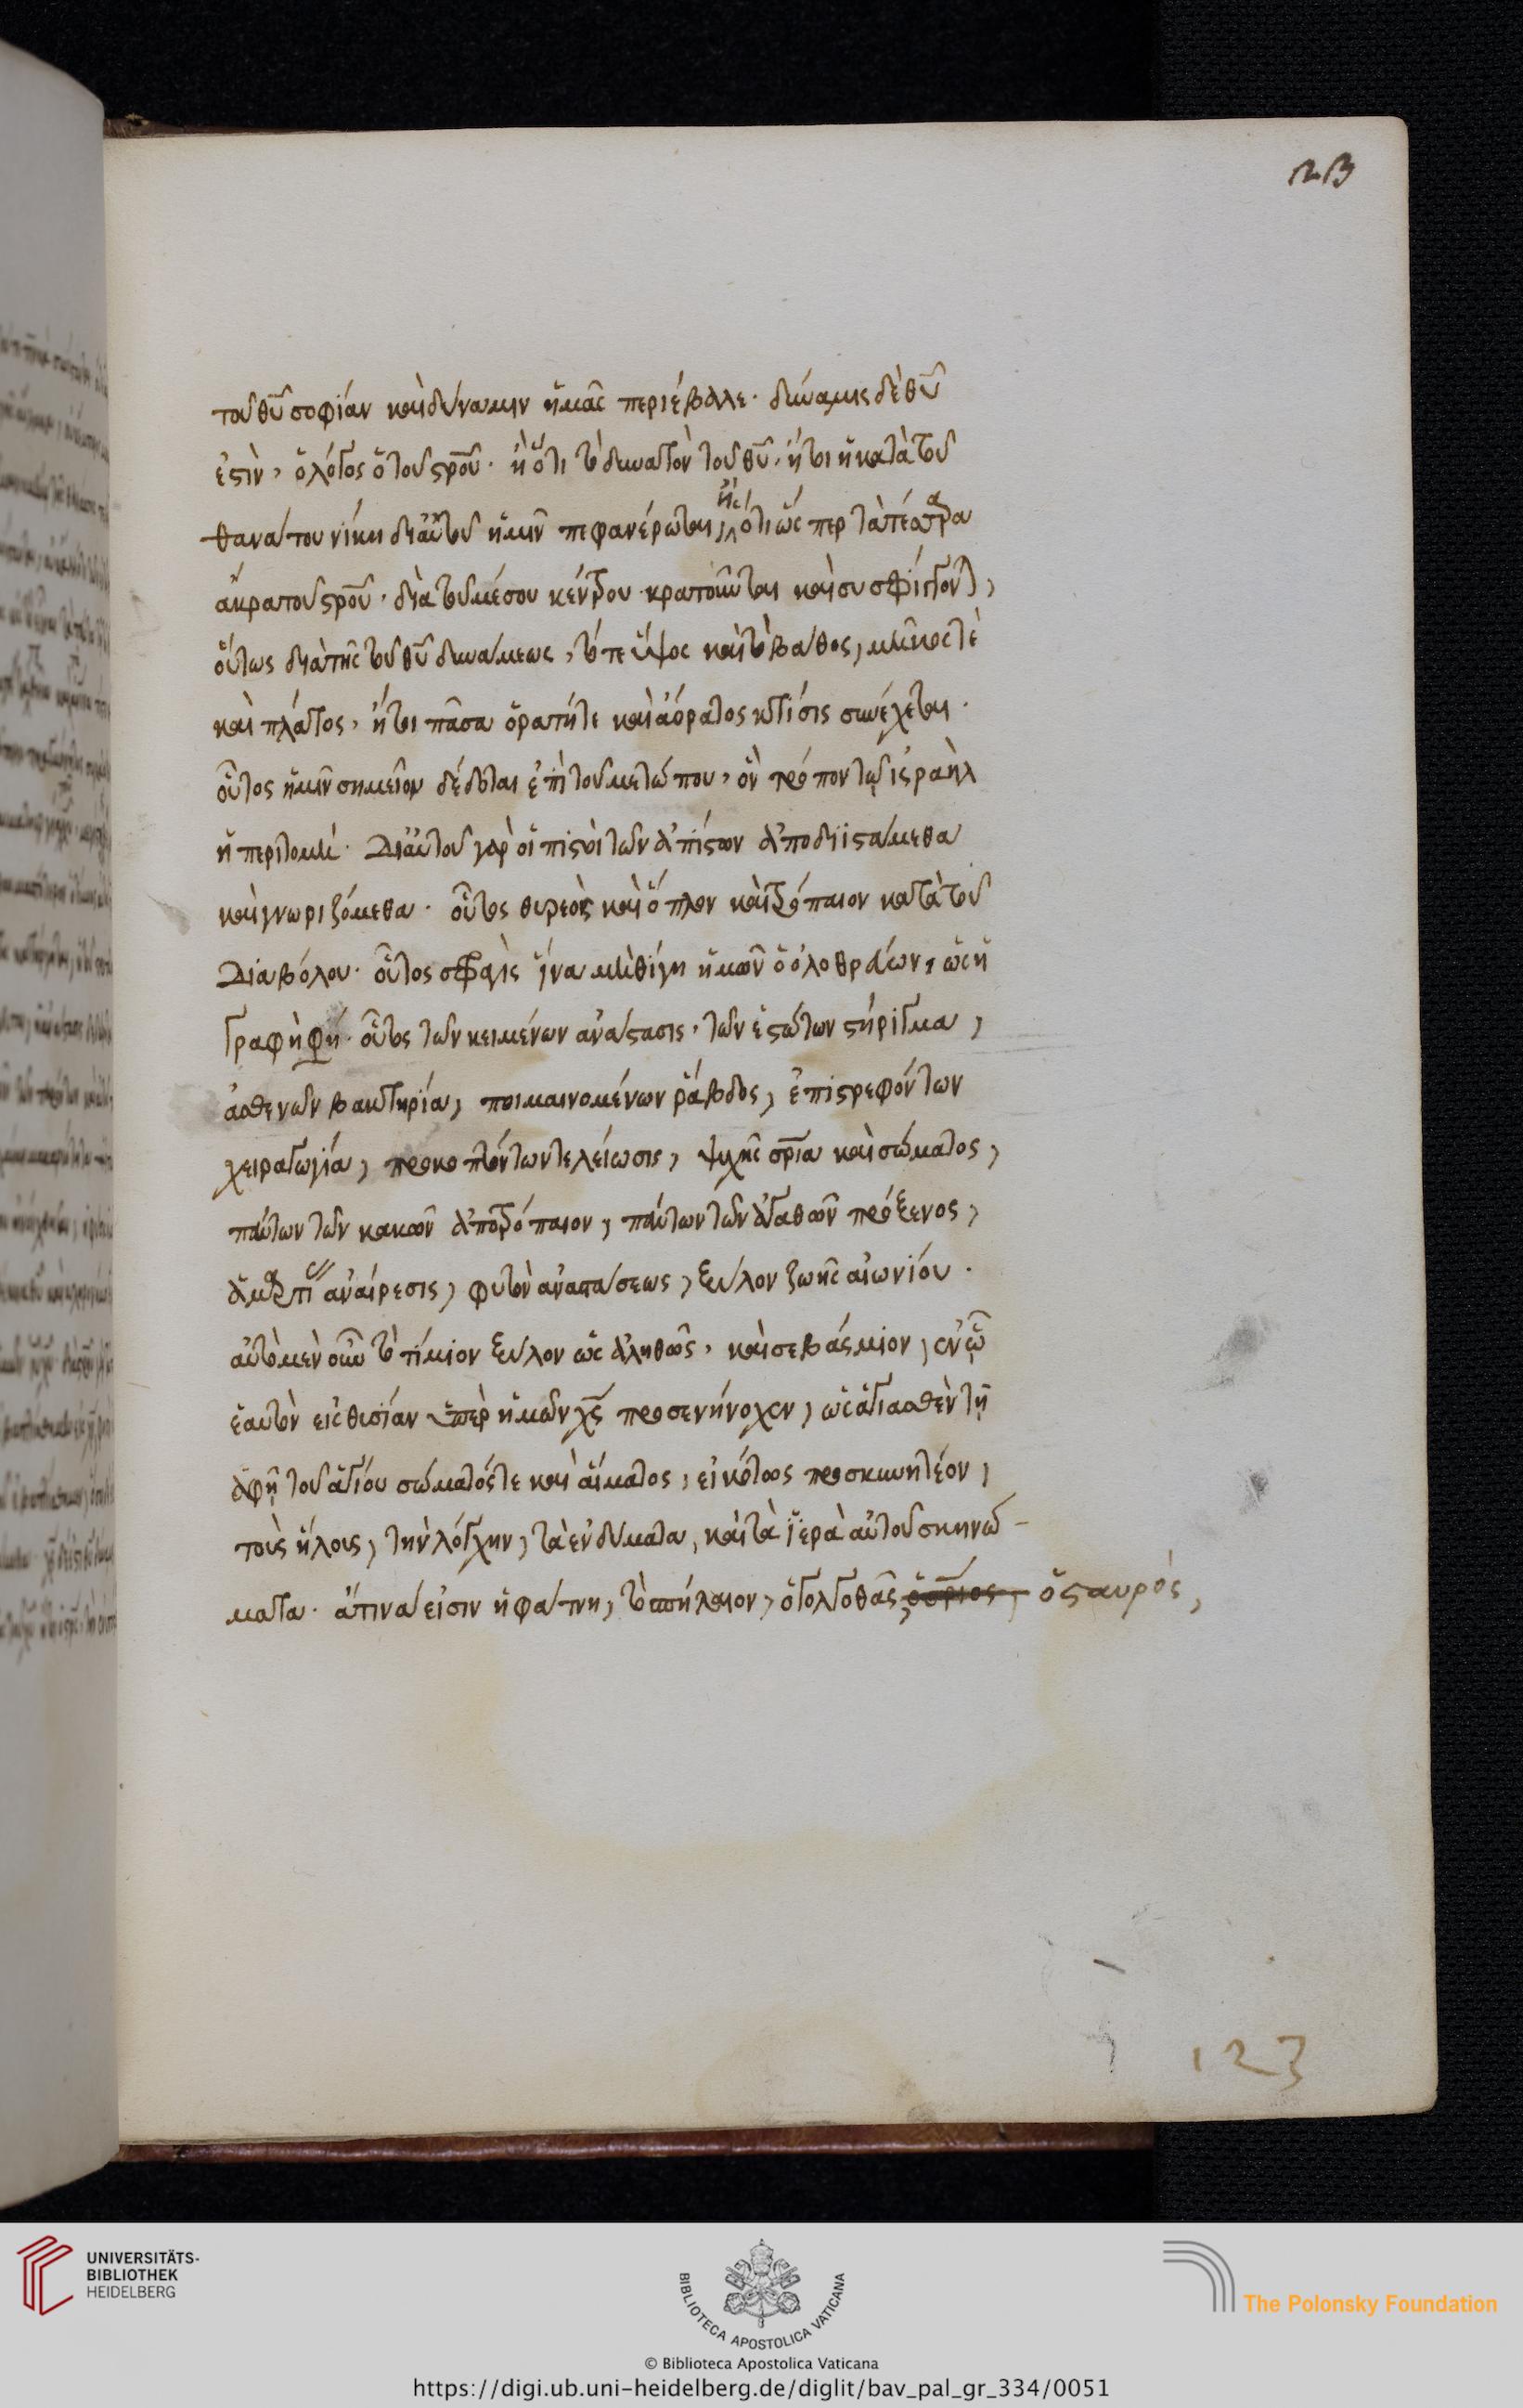 23
τοῦ θῦ σοφίαν καὶ δύναμιν ἡμᾶς περιέβαλε· δύναμις δὲ θῦ
ἐστὶν, ὁ λόγος ὁ τοῦ σροῦ· ἢ ὅτι τὸ δυνατὸν τοῦ θῦ, ἤτοι ἡ κατὰ τοῦ
θανάτου νίκη δι' αὐτοῦ ἡμῖν πεφανέρωται, ἢ ὅτι ὥσπερ τὰ τέσσαρα
ἄκρα τοῦ σροῦ· διὰ τοῦ μέσου κέντρου κρατοῦνται καὶ συσφίγγοντ),
οὕτως διὰ τῆς τοῦ θῦ δυνάμεως, τό τε ὕψος καὶ τὸ βάθος, μῆκος τὲ
καὶ πλάτος, ἤτοι πᾶσα ὁρατή τε καὶ ἀόρατος κτίσις συνέχεται·
οὗτος ἡμῖν σημεῖον δέδοται ἐπὶ τοῦ μετώπου, ὃν τρόπον τῷ ἰσραὴλ
ἡ περιτομή· Δι' αὐτοῦ γὰρ οἱ πιστοὶ τῶν ἀπίστων ἀποδιιστάμεθα
καὶ γνωριζόμεθα· οὗτος θυρεὸς καὶ ὅπλον καὶ τρόπαιον κατὰ τοῦ
Διαβόλου· οὗτος σφραγὶς ἵνα μὴ θίγῃ ἡμῶν ὁ ὀλοθρεύων, ὥς ἡ
γραφή φη· οὗτος τῶν κειμένων ἀνάστασις, τῶν ἑστώτων στήριγμα,
ἀσθενῶν βακτηρία, ποιμαινομένων ῥάβδος, ἐπιστρεφόντων
χειραγωγία, προκοπτόντων τελείωσις, ψυχῆς σρία καὶ σώματος,
πάντων τῶν κακῶν ἀποτρόπαιον, πάντων τῶν ἀγαθῶν πρόξενος,
ἁμαρτί ἀναίρεσις, φυτὸν ἀναστάσεως, ξύλον ζωῆς αἰωνίου·
αὐτὸ μὲν οὖν τὸ τίμιον ξύλον ὡς ἀληθῶς, καὶ σεβάσμιον, ἐν ᾧ
ἑαυτὸν εἰς θυσίαν ὑπὲρ ἡμῶν χς προσενήνοχεν, ὡς ἁγιασθὲν τῇ
ἀφῇ τοῦ ἁγίου σώματός τε καὶ αἵματος, εἰκότως προσκυνητέον,
τοὺς ἥλους, τὴν λόγχην, τὰ ἐνδύματα, καὶ τὰ ἱερὰ αὐτοῦ σκηνώ-
ματα· ἅτινα εἰσιν ἡ φάτνη, τὸ σπήλαιον, ὁ γολγοθᾶς, ὁ σριος, ὁ σταυρός,
123
UNIVERSITÄTS-
BIBLIOTHEK
HEIDELBERG
BIBLIOTECA APOSTOLICA VATICANA
The Polonsky Foundation
© Biblioteca Apostolica Vaticana
https://digi.ub.uni-heidelberg.de/diglit/bav_pal_gr_334/0051